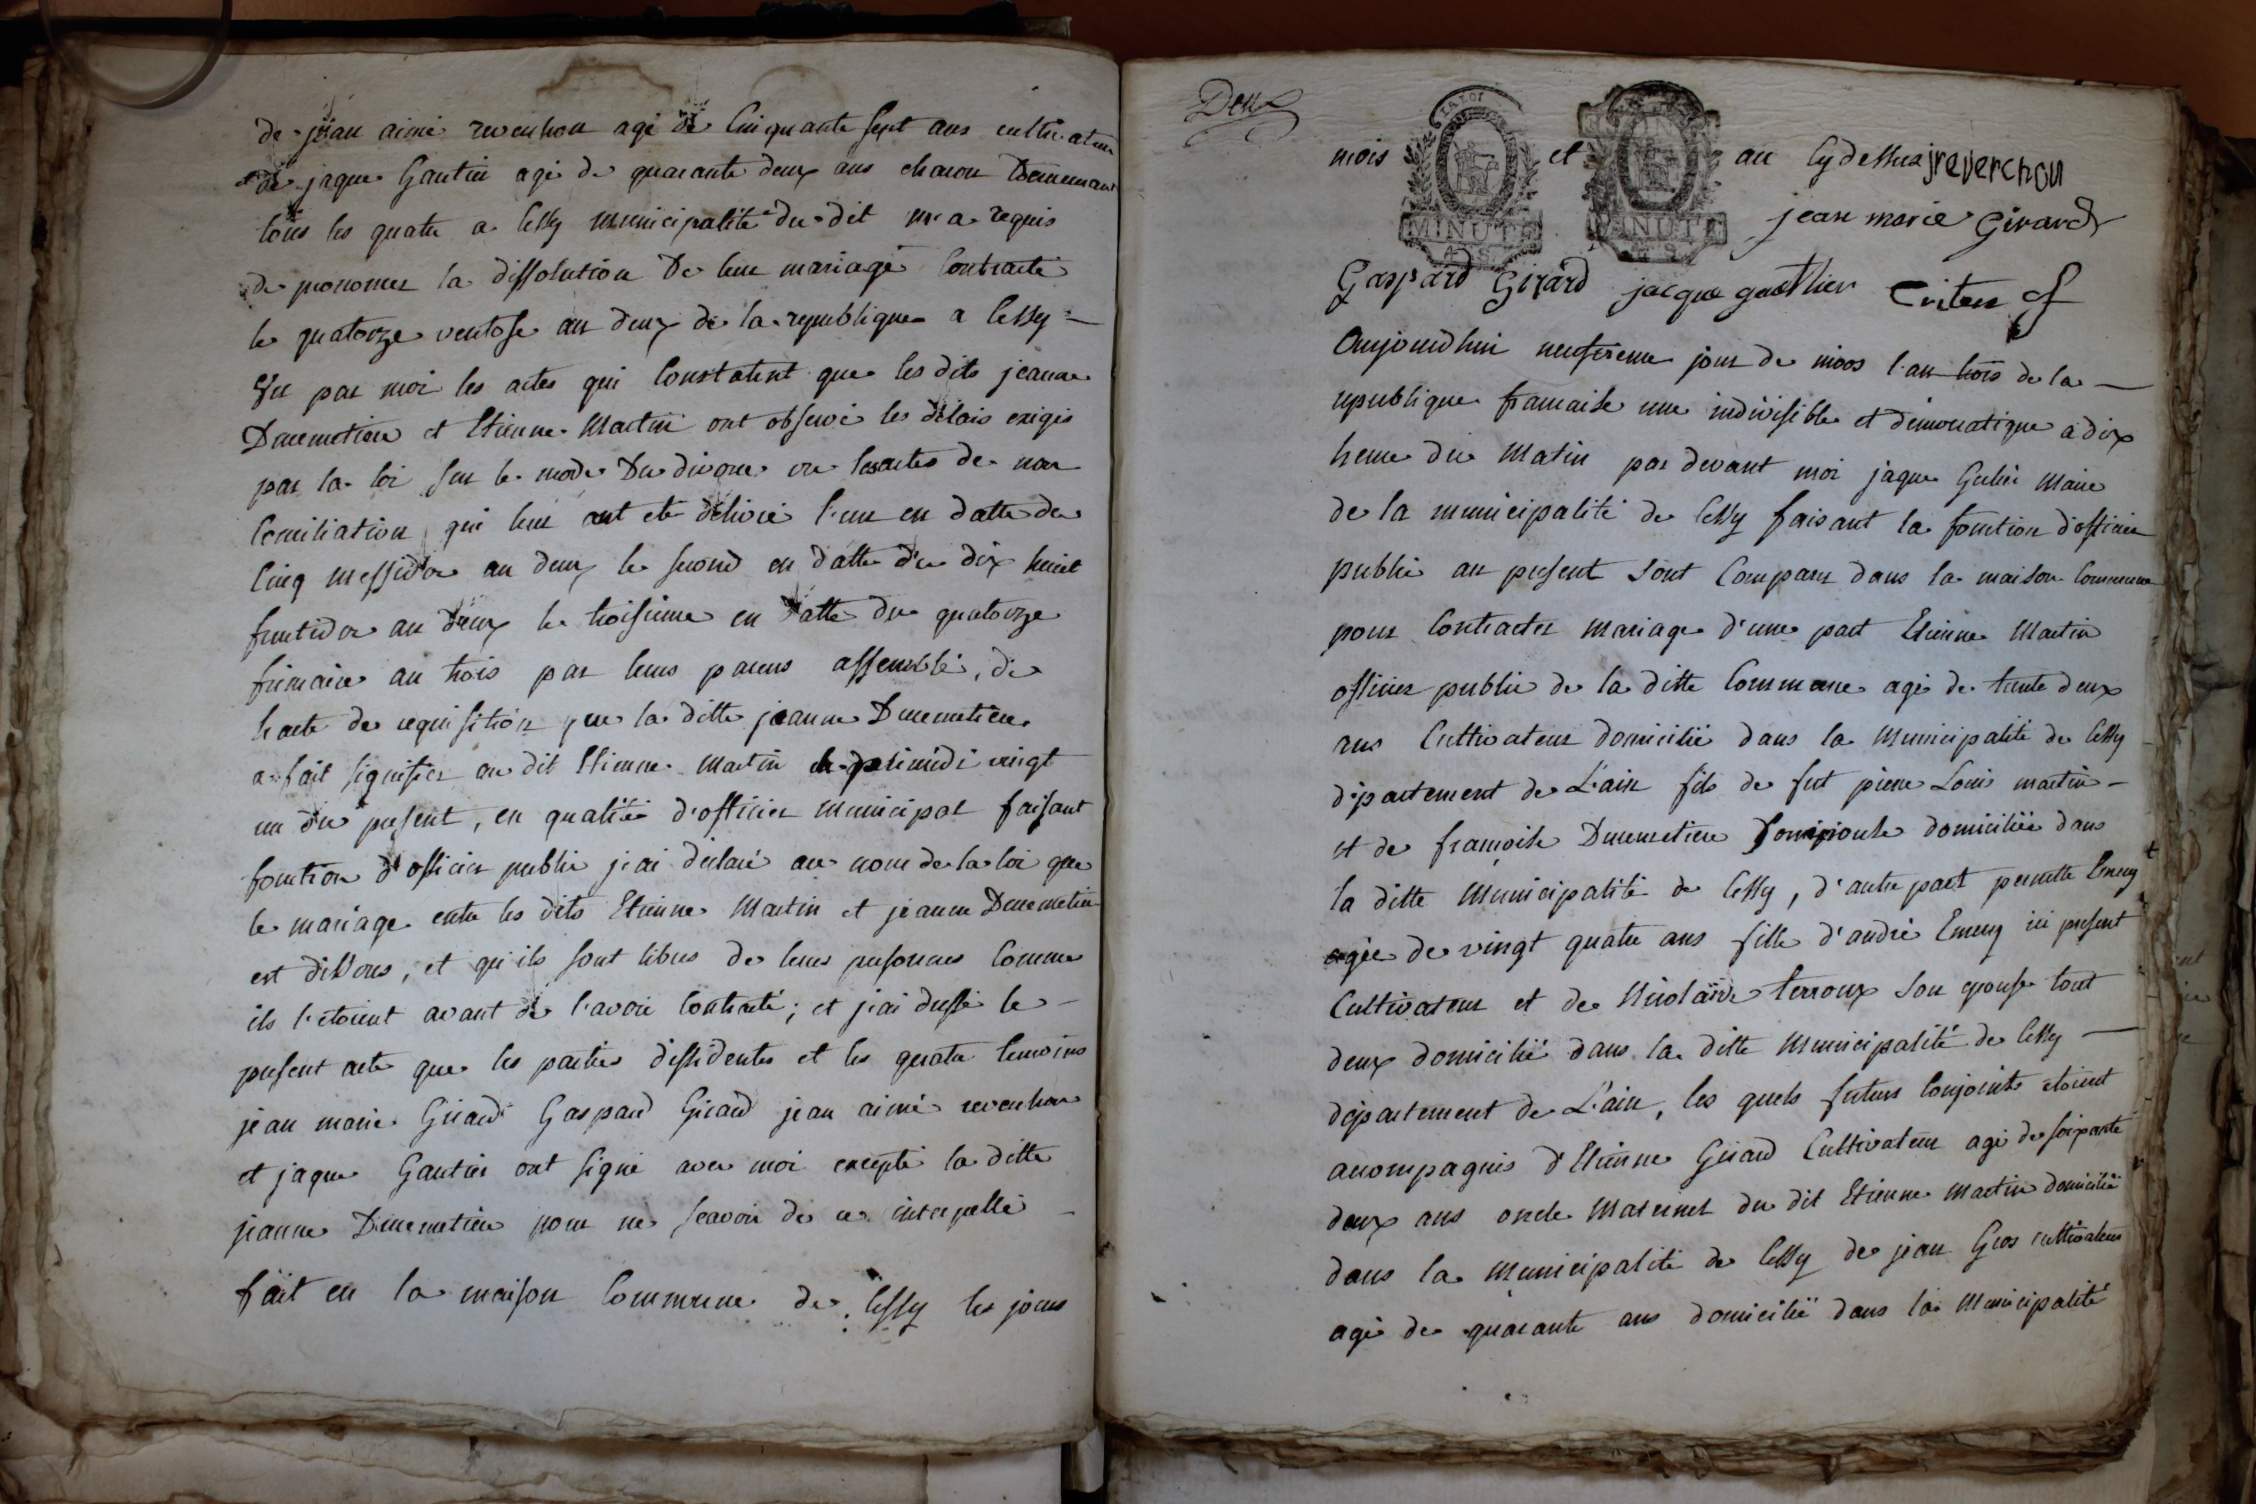 de jean aimé reverchon agé de Cinquante sept ans cultivateur
et de jaque Gautier agé de quarante deux ans charon Demeurant
tous les quatre a Cessy municipalité du dit m'a requis
de prononcer la dissolution De leur mariage Contracté
le quatorze ventose an deux de la republique a Cessy
Vu par moi les actes qui Constatent que les dits jeanne
Duremetiere et Etienne Martin ont observé les délais exigés
par la loi sur le mode Du divorce vu les actes de non
Conciliation qui leur ont eté délivré l'un en datte du
Cinq messidor an deux le second en datte du dix huit
fructidor an deux le troisieme en datte du quatorze
frimaire an trois par leurs parens assemblé, de
l'acte de requisition que la ditte jeanne Duremetiere
a fait signifier au dit Etienne Martin le primidi vingt
un du present, en qualité d'officier Municipal faisant
fonction d'officier public j'ai déclaré au nom de la loi que
le mariage entre les dits Etienne Martin et jeanne Duremetiere
est dissous, et qu'ils sont libres de leurs personnes Comme
ils l'etoient avant de l'avoir Contracté; et j'ai dressé le
present acte que les parties dissidentes et les quatre temoins
jean marie Girard Gaspard Girard jean aimé reverchon
et jaque Gautier ont signé avec moi excepté la ditte
jeanne Duremetiere pour ne scavoir de ce interpellé
fait en la maison Commune de Cessy les jours
Deux
mois et an Cy dessus jreverchon
LA LOI
MINUTE
4 S
MINUTE
4 S
jean marie Girard
Gaspard Girard jacque gauthier
Aujourdhui neufvieme jour de nivos l'an trois de la
republique francaise une indivisible et démocratique a dix
heure du Matin par devant moi jaque Maire
de la municipalité de Cessy faisant la fonction d'officier
public au present sont Comparu dans la maison Commune
pour Contracter mariage d'une part Etienne Martin
officier public de la ditte Commune agé de trente deux
ans Cultivateur domicilié dans la Municipalité de Cessy
département de L'ain fils de fut pierre Louis martin
et de francoise Duremetiere son epouse domiciliée dans
la ditte Municipalité de Cessy, d'autre part pernette Emery
agée de vingt quatre ans fille d'andré Emery ici present
Cultivateur et de Nicolarde terroux son epouse tout
deux domicilié dans la ditte Municipalité de Cessy
département de L'ain, les quels futurs Conjoints etoient
accompagnés d'Etienne Girard Cultivateur agé de soixante
deux ans oncle Maternel du dit Etienne Martin domicilié
dans la Municipalité de Cessy de jean Gros cultivateur
agé de quarante ans domicilié dans la Municipalité